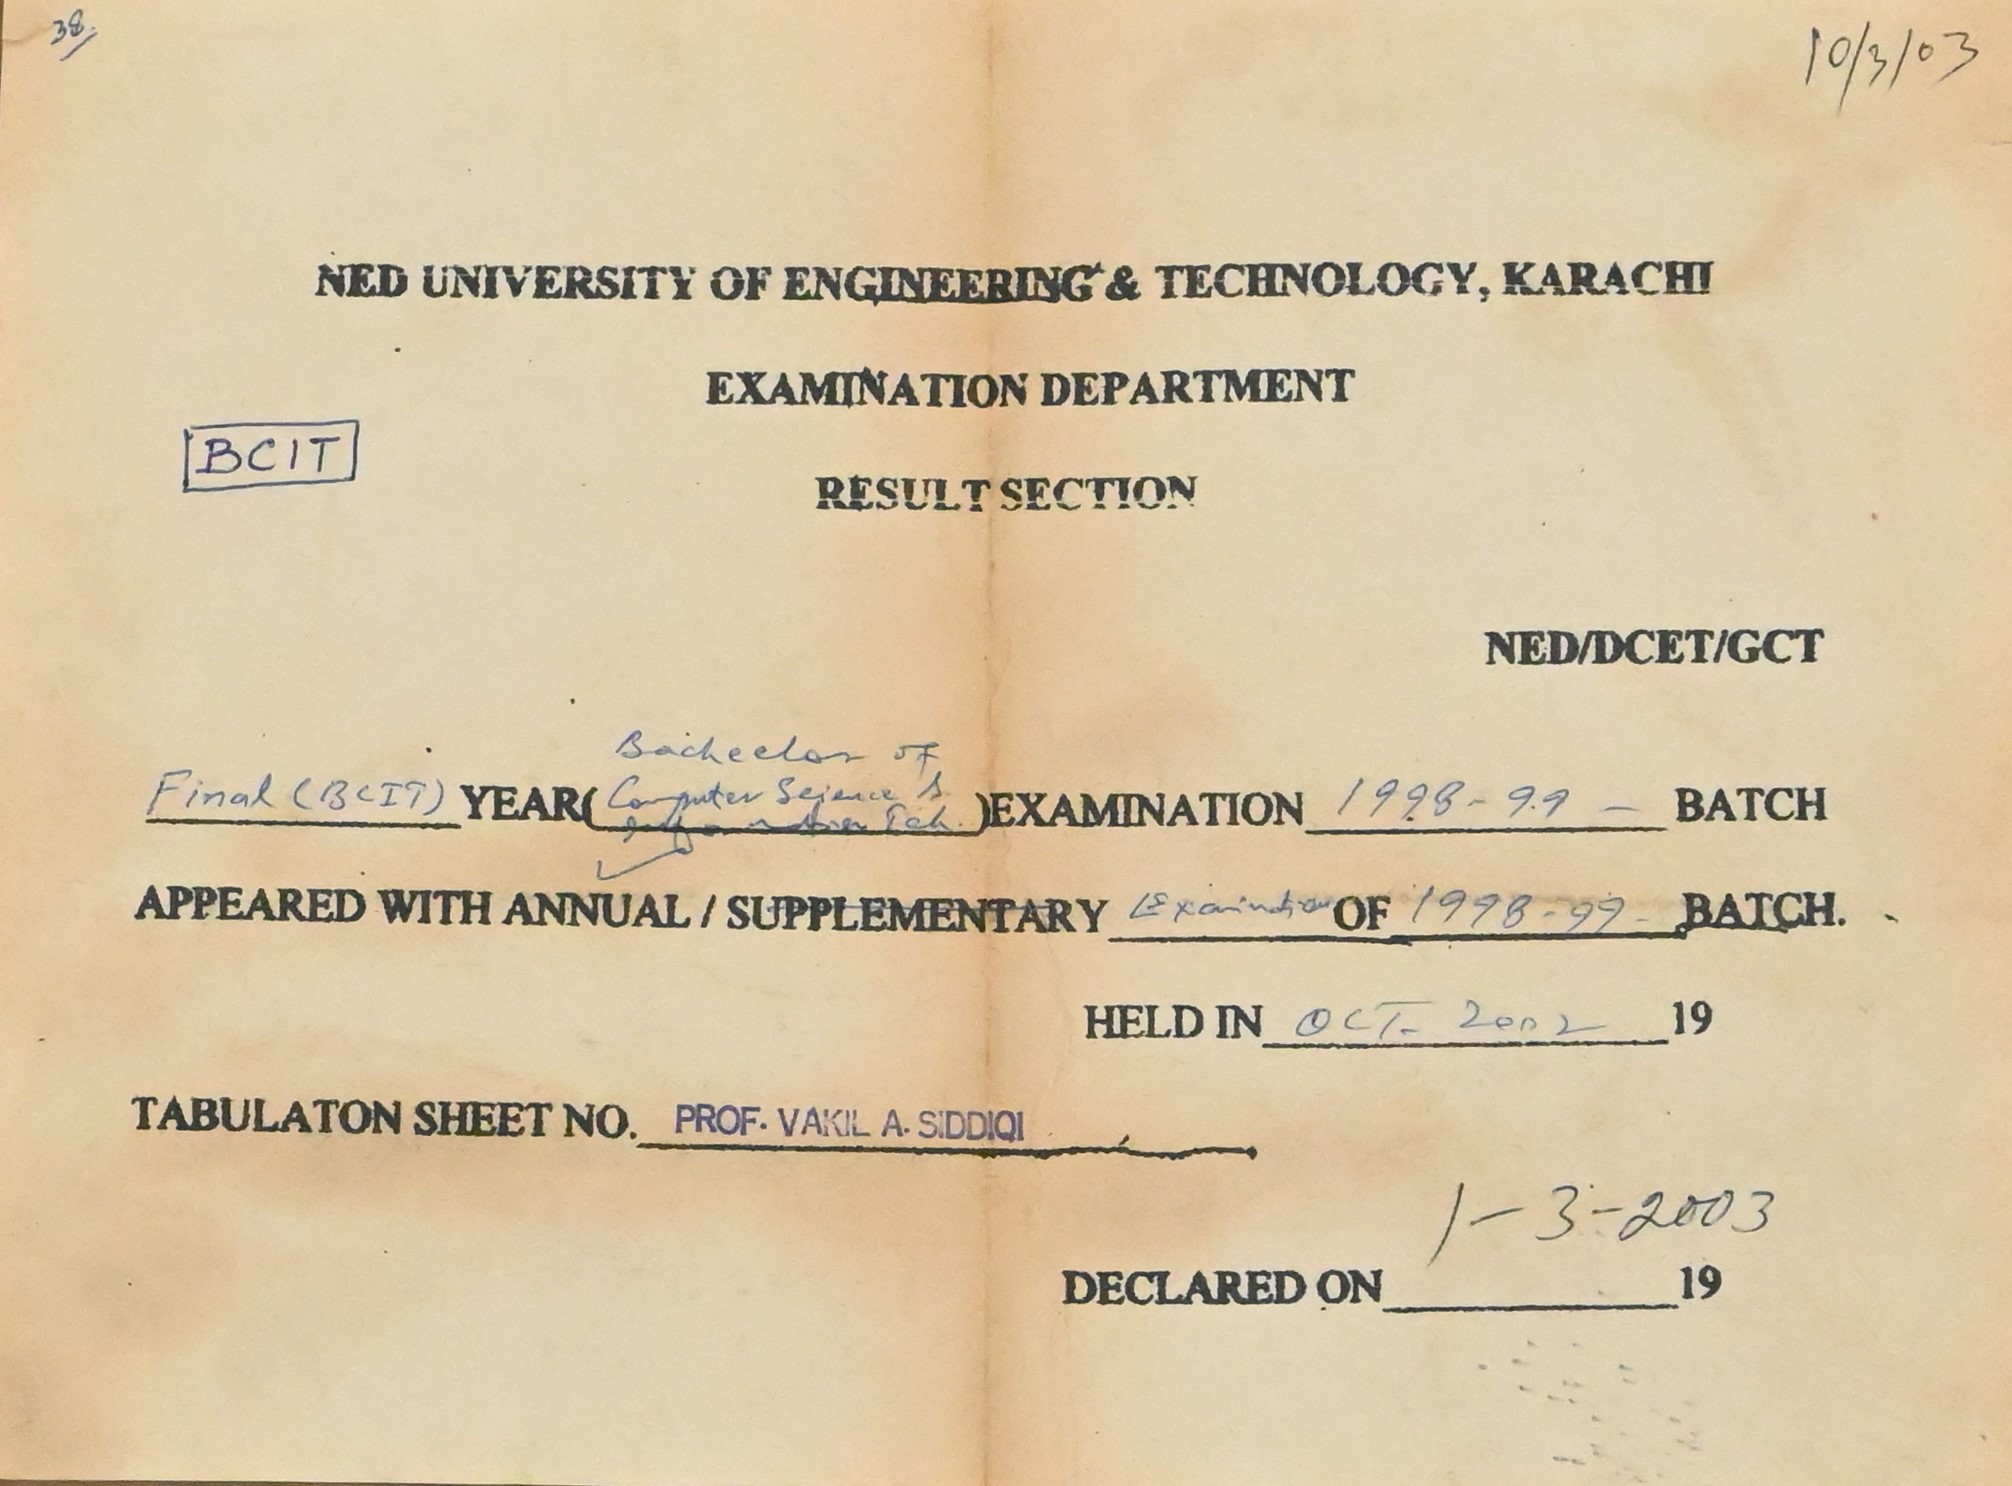 38,
10/3/03
NED UNIVERSITY OF ENGINEERING & TECHNOLOGY, KARACHI
EXAMINATION DEPARTMENT
BCIT
RESULT SECTION
NED/DCET/GCT
Bachelor of
Final (BCIT) YEAR( Computer Science & )EXAMINATION 1998-99 - BATCH
Information Tech.
APPEARED WITH ANNUAL / SUPPLEMENTARY Examination OF 1998-99- BATCH.
HELD IN OCT. 2002 19
TABULATON SHEET NO. PROF. VAKIL A. SIDDIQI
1-3-2003
DECLARED ON 19